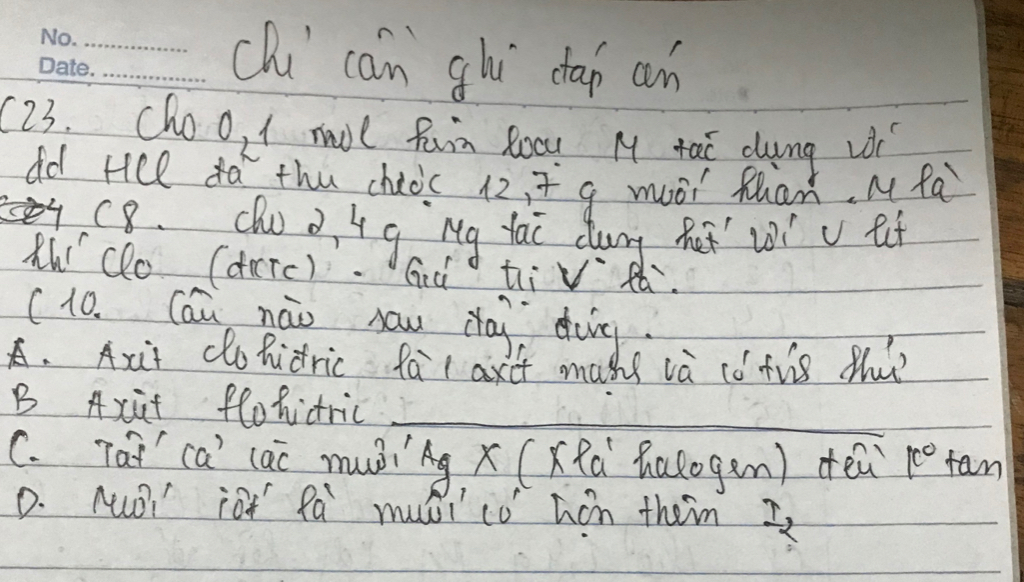 No. ............... Chỉ cần ghi đáp án
Date. ...............
C23. Cho 0,1 mol kim loại M tác dụng với
dd HCl đã thu được 12,7 g muối khan. M là
C8. cho 2,4 g Mg tác dụng hết với V lít
khí Clo (đktc). Giá trị V là.
C10. Câu nào sau đây đúng.
A. Axit clohiđric là 1 axít mạnh và có tính khử
B Axit flohiđric
C. Tất cả các muối Ag X (X là halogen) đều kº tan
D. Muối iốt là muối có trộn thêm I2